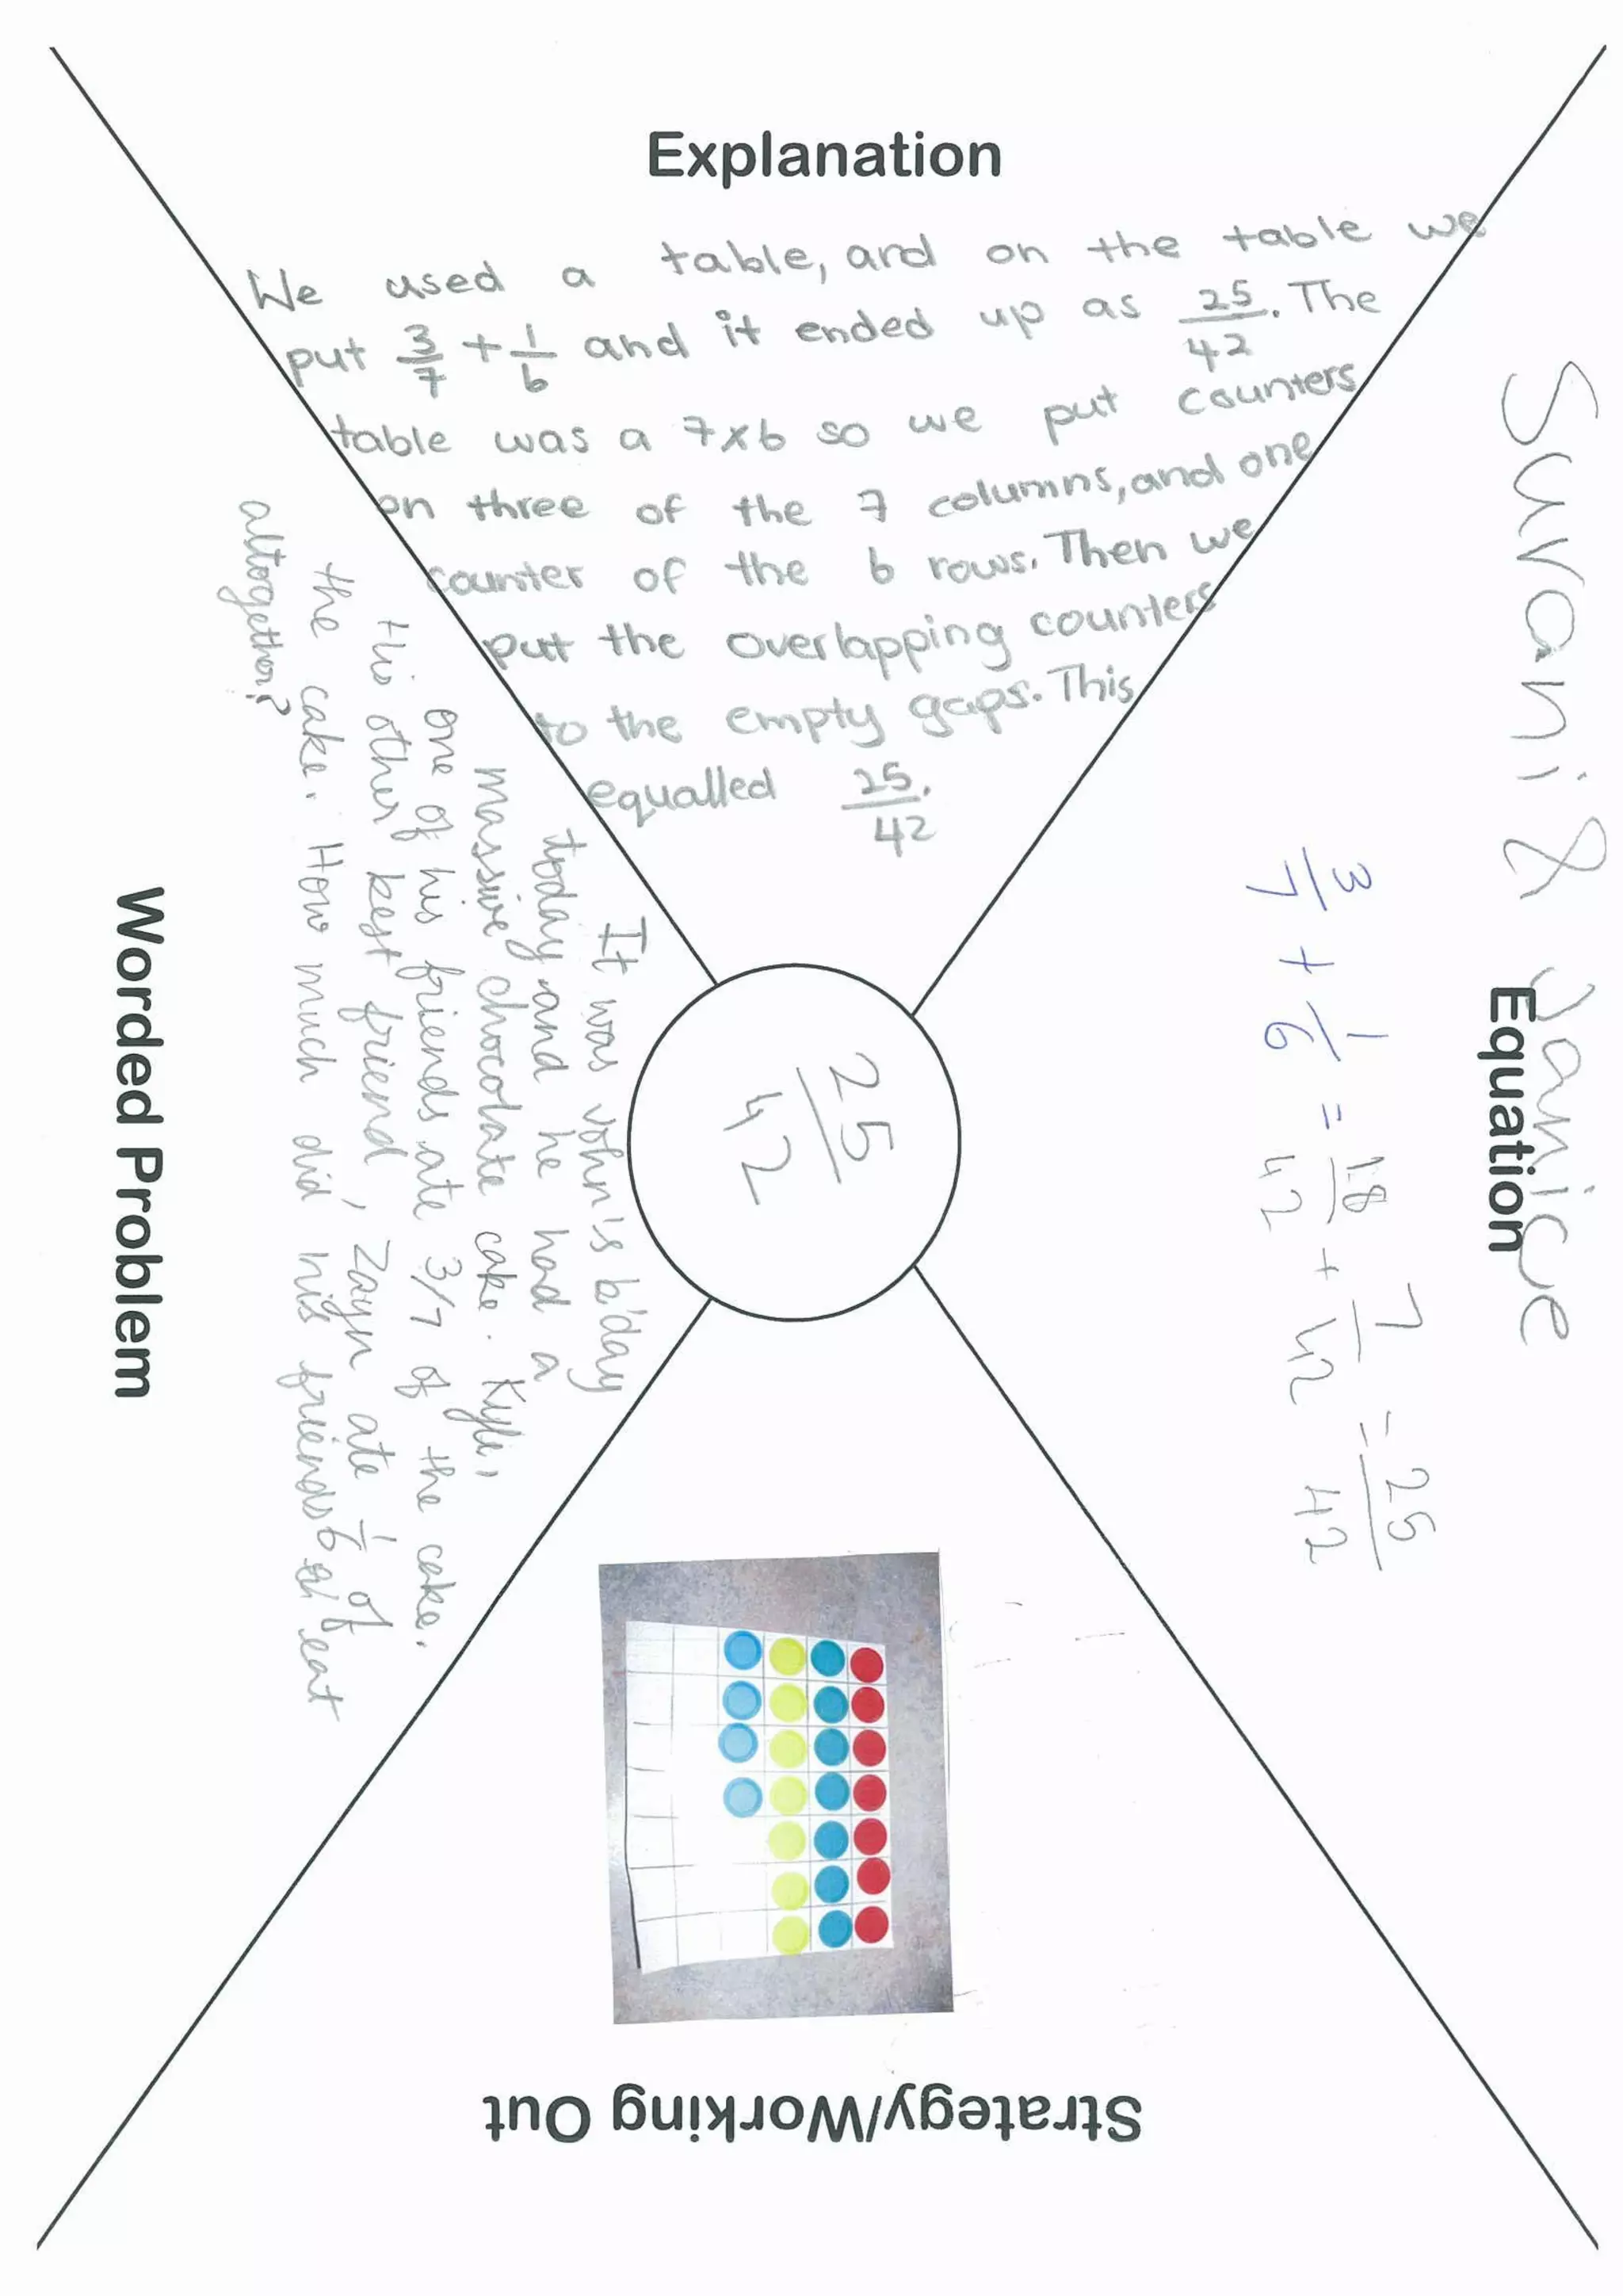 Explanation
We used a table, and on the table we
put 3/7 + 1/6 and it ended up as 25/42. The
table was a 7x6 so we put counters
on three of the 7 columns, and one
counter of the 6 rows. Then we
put the overlapping counters
to the empty gaps. This
equalled 25/42.
Suvani & Janice
Equation
3/7 + 1/6 = 18/42 + 7/42 = 25/42
25/42
It was John's b'day
today and he had a
massive chocolate cake. Kyle,
one of his friends ate 3/7 of the cake.
His other best friend, Zayn ate 1/6 of
the cake. How much did his friends eat
altogether?
Worded Problem
Strategy/Working Out